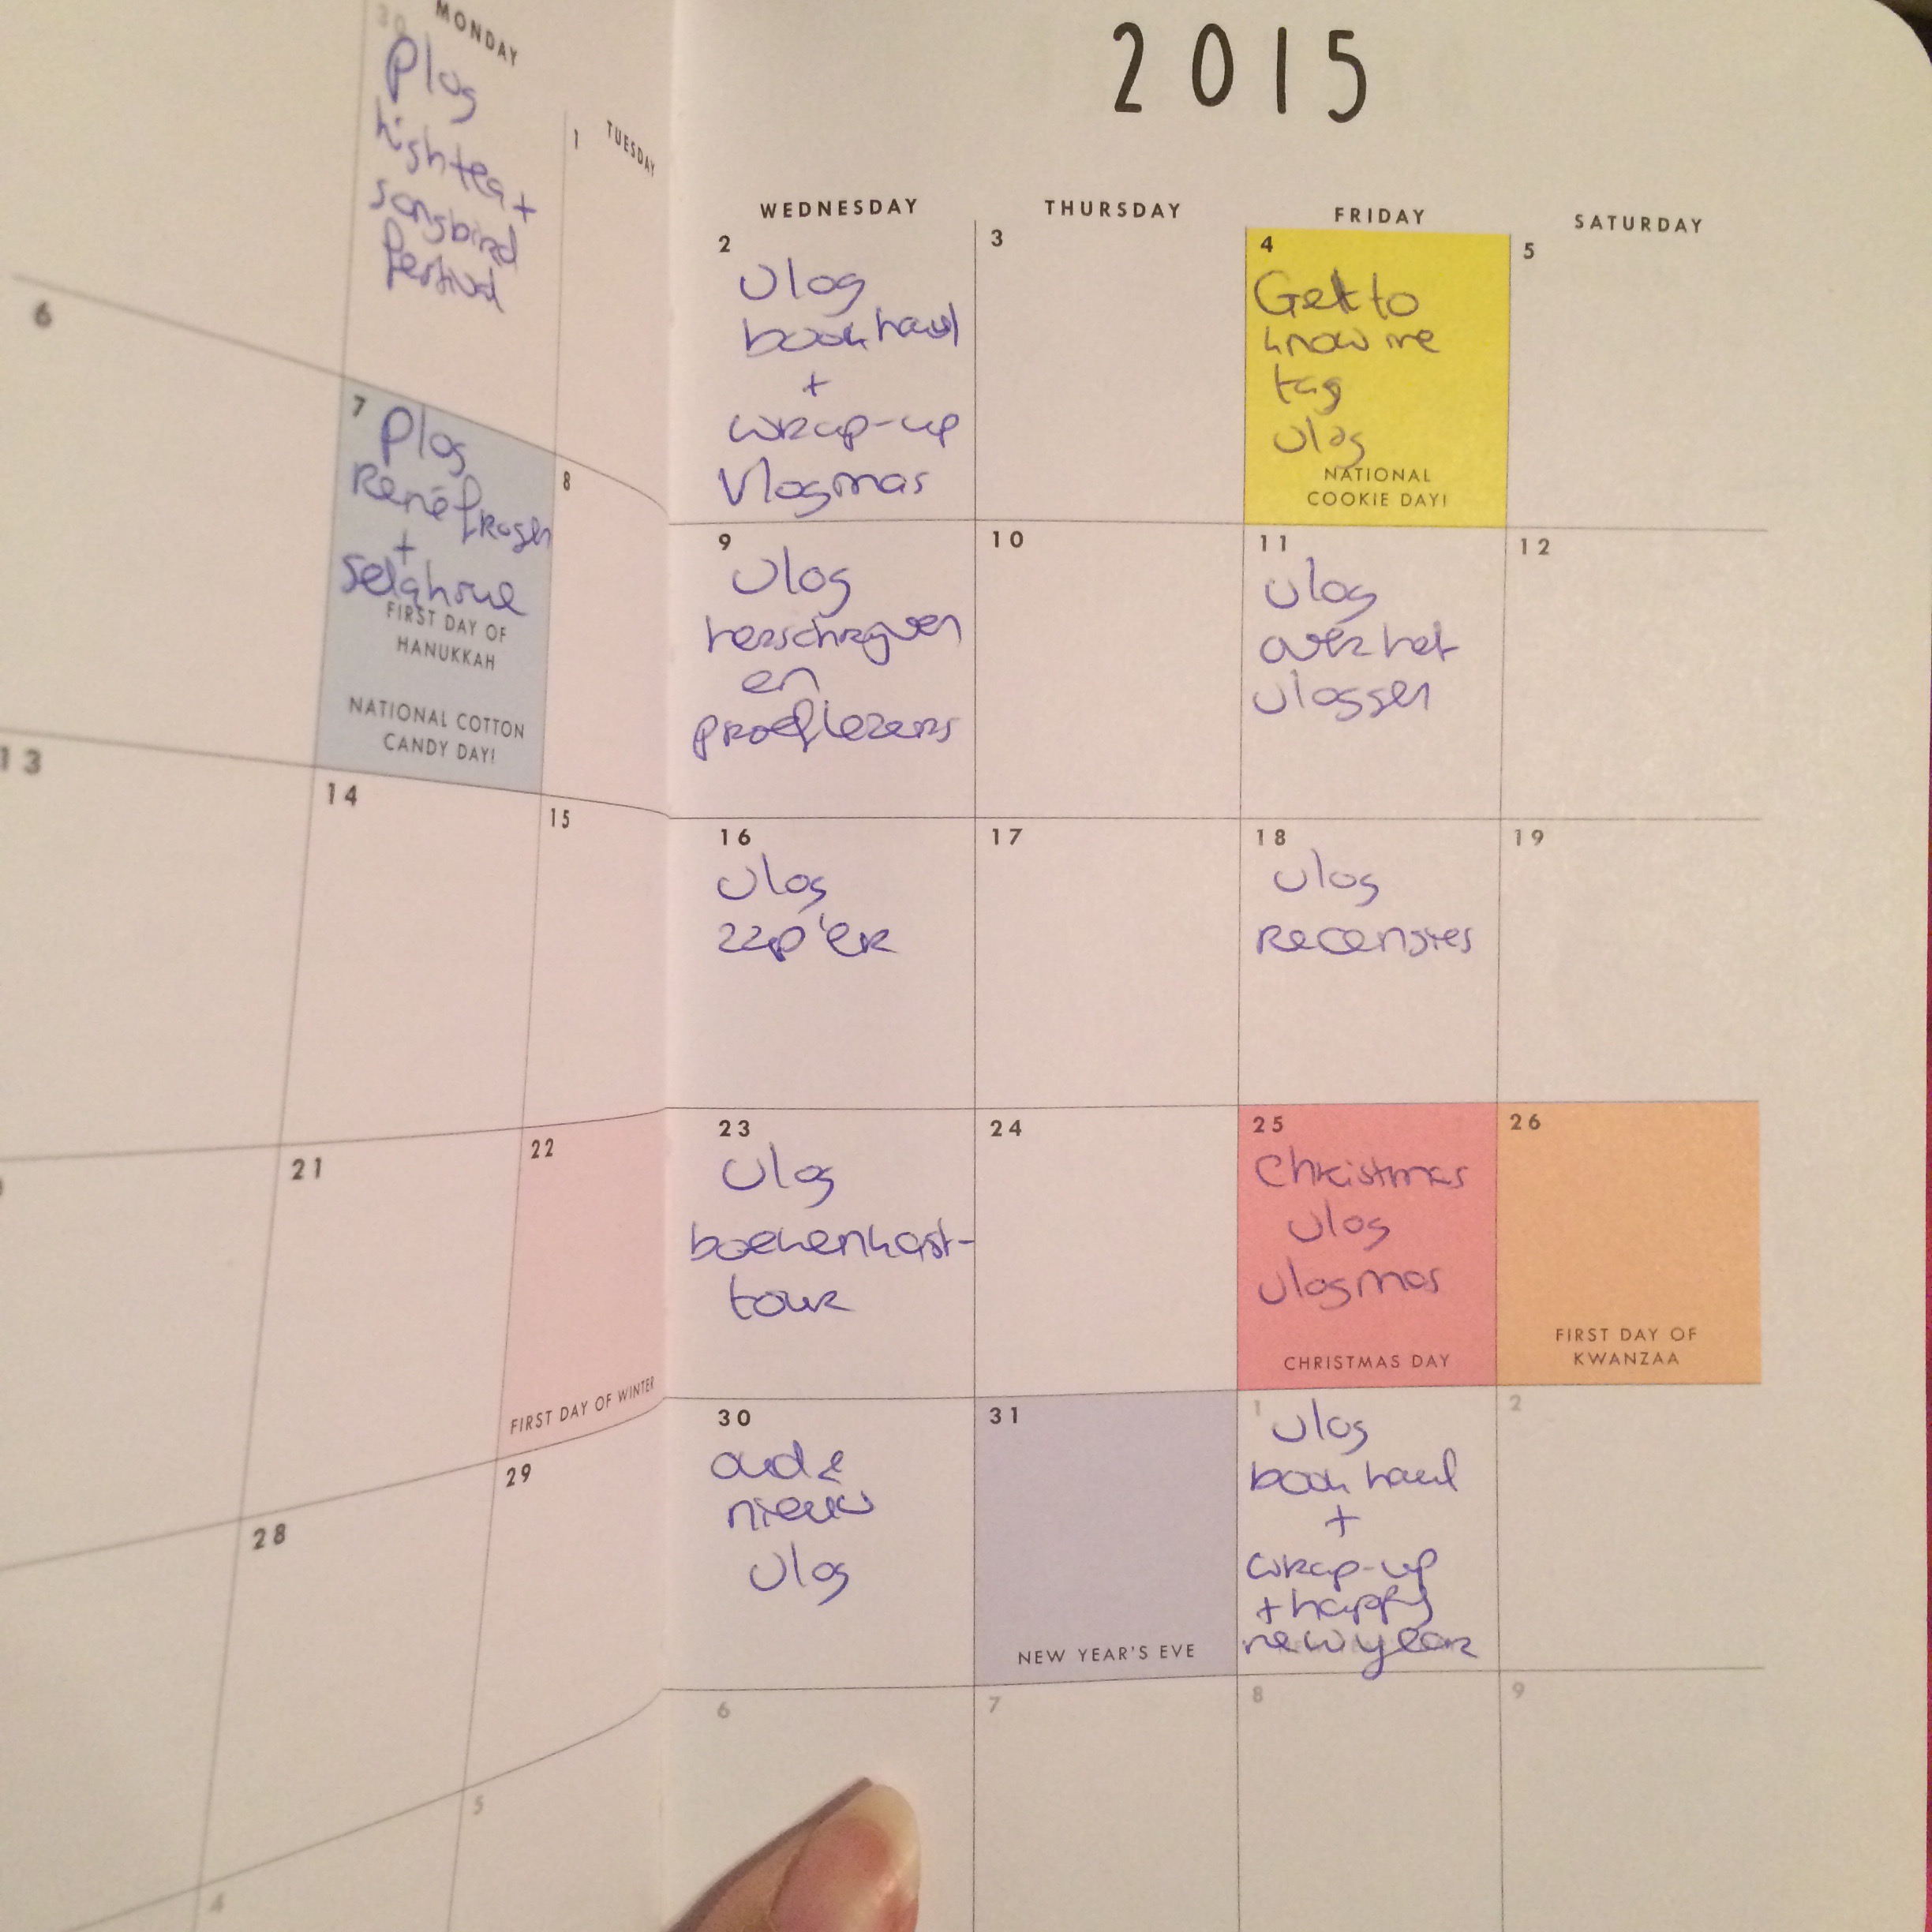 2015
MONDAY
TUESDAY
WEDNESDAY
THURSDAY
FRIDAY
SATURDAY
30
Plog
hightea +
songbird
festival
1
2
Vlog
book haul
+
wrap-up
Vlogmas
3
4
Get to
know me
tag
vlog
NATIONAL
COOKIE DAY!
5
6
7
Plog
René froger
+
FIRST DAY OF
HANUKKAH
NATIONAL COTTON
CANDY DAY!
8
9
Vlog
herschrijven
en
proeflezers
10
11
Vlog
over het
vloggen
12
13
14
15
16
Vlog
zzp'er
17
18
Vlog
recensies
19
21
22
FIRST DAY OF WINTER
23
Vlog
boekenkast-
tour
24
25
Christmas
vlog
vlogmas
CHRISTMAS DAY
26
FIRST DAY OF
KWANZAA
28
29
30
oud &
nieuw
Vlog
31
NEW YEAR'S EVE
1
Vlog
book haul
+
wrap-up
+ happy
new year
2
4
5
6
7
8
9